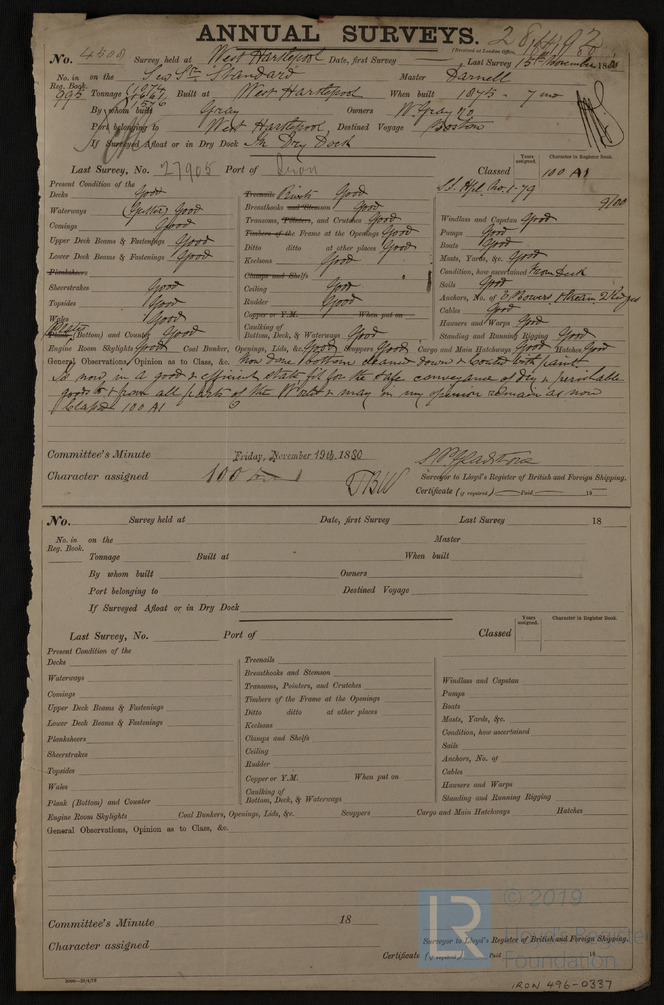 ANNUAL SURVEYS.
(Received at London Office,
No. 4508 Survey held at West Hartlepool Date, first Survey Last Survey 15th November 1880
No. in Reg. Book. on the Standard Master Darnell
995 Tonnage Built at West Hartlepool When built 1875 - 7 mo
By whom built Gray Owners W. Gray & Co
Port belonging to West Hartlepool Destined Voyage Boston
If Surveyed Afloat or in Dry Dock In Dry Dock
Years assigned. Character in Register Book.
Last Survey, No. 27905 Port of Classed 100 A1
Present Condition of the
Decks Good
Waterways Good
Comings Good
Upper Deck Beams & Fastenings Good
Lower Deck Beams & Fastenings Good
Planksheers
Sheerstrakes Good
Topsides Good
Wales Good
Plank (Bottom) and Counter Good
Treenails Rivets Good
Breasthooks and Stemson Good
Transoms, Pointers, and Crutches Good
Timbers of the Frame at the Openings Good
Ditto ditto at other places Good
Keelsons Good
Clamps and Shelfs
Ceiling Good
Rudder Good
Copper or Y.M. When put on
Caulking of Bottom, Deck, & Waterways Good
9/80
Windlass and Capstan Good
Pumps Good
Boats Good
Masts, Yards, &c. Good
Condition, how ascertained from Deck
Sails Good
Anchors, No. of 3 Bowers 1 Stream 2 Kedges
Cables Good
Hawsers and Warps Good
Standing and Running Rigging Good
Engine Room Skylights Good Coal Bunker, Openings, Lids, &c. Good Scuppers Good Cargo and Main Hatchways Good Hatches Good
General Observations, Opinion as to Class, &c. Now done bottom cleaned down & coated with paint
Is now in a good & efficient state fit for the safe conveyance of dry & perishable
goods to & from all parts of the World & may in my opinion remain as now
Classed 100 A1
Committee's Minute Friday, November 19th, 1880
Character assigned 100 A1
Surveyor to Lloyd's Register of British and Foreign Shipping.
Certificate (if required) Paid 18
No. Survey held at Date, first Survey Last Survey 18
No. in Reg. Book. on the Master
Tonnage Built at When built
By whom built Owners
Port belonging to Destined Voyage
If Surveyed Afloat or in Dry Dock
Years assigned. Character in Register Book.
Last Survey, No. Port of Classed
Present Condition of the
Decks
Waterways
Comings
Upper Deck Beams & Fastenings
Lower Deck Beams & Fastenings
Planksheers
Sheerstrakes
Topsides
Wales
Plank (Bottom) and Counter
Treenails
Breasthooks and Stemson
Transoms, Pointers, and Crutches
Timbers of the Frame at the Openings
Ditto ditto at other places
Keelsons
Clamps and Shelfs
Ceiling
Rudder
Copper or Y.M. When put on
Caulking of Bottom, Deck, & Waterways
Windlass and Capstan
Pumps
Boats
Masts, Yards, &c.
Condition, how ascertained
Sails
Anchors, No. of
Cables
Hawsers and Warps
Standing and Running Rigging
Engine Room Skylights Coal Bunkers, Openings, Lids, &c. Scuppers Cargo and Main Hatchways Hatches
General Observations, Opinion as to Class, &c.
Committee's Minute 18
Character assigned
Surveyor to Lloyd's Register of British and Foreign Shipping.
Certificate (if required) Paid 18
LR © 2019
Lloyd's Register
Foundation
IRON 496-0337